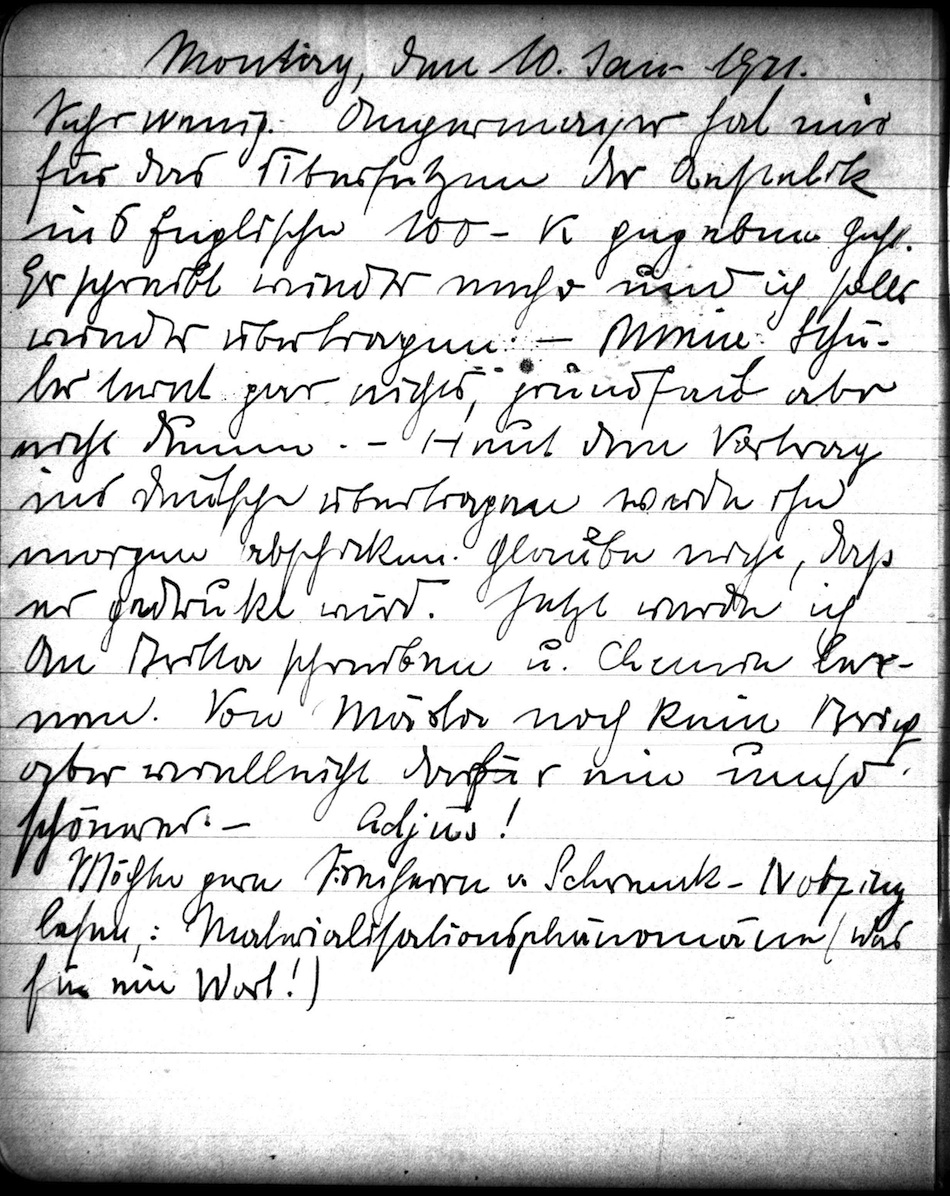 Montag, den 10. Jan. 1921.
Sehr wenig. Angermayer hat mir
für das Übersetzen der
ins Englische 100 - K gegeben
Er schreibt wieder mehr und ich soll's
wieder übertragen. — Meine Schü-
ler lernt gar nichts, grundfaul aber
nicht dumm. - Heut den Vortrag
ins deutsche übertragen werde ihn
morgen abschicken. Glaube nicht, dass
er gedruckt wird. Jetzt werde ich
an Britta schreiben u. Chemie ler-
nen. Von noch kein Brief
aber vielleicht dafür ein umso
schönerer. — Adjüs!
Möchte gern Freiherrn v. Schrenck - Notzing
lesen,: Materialisationsphänomäne (was
für ein Wort!)